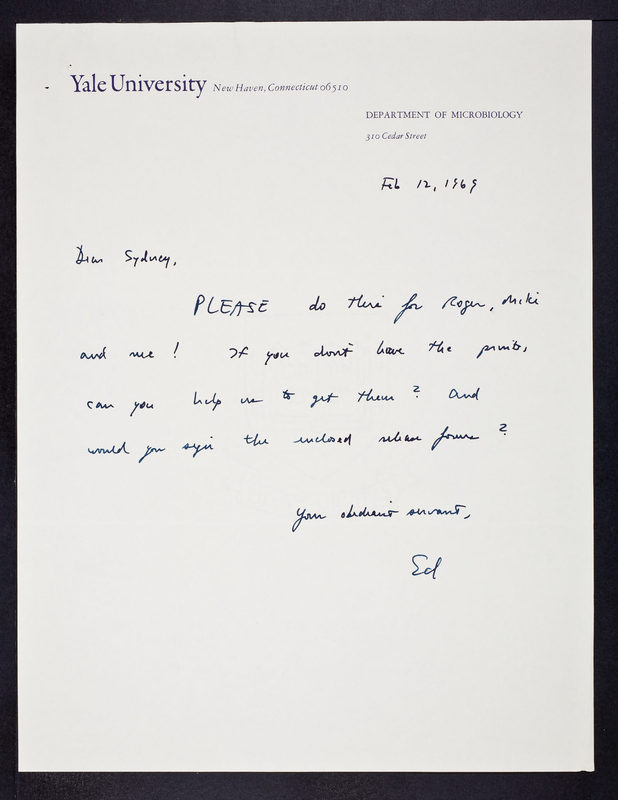 Yale University New Haven, Connecticut 06510
DEPARTMENT OF MICROBIOLOGY
310 Cedar Street
Feb 12, 1969
Dear Sydney,
PLEASE do this for Roger, Mike
and me! If you don't have the prints,
can you help us to get them? And
would you sign the enclosed release forms?
Your obedient servant,
Ed